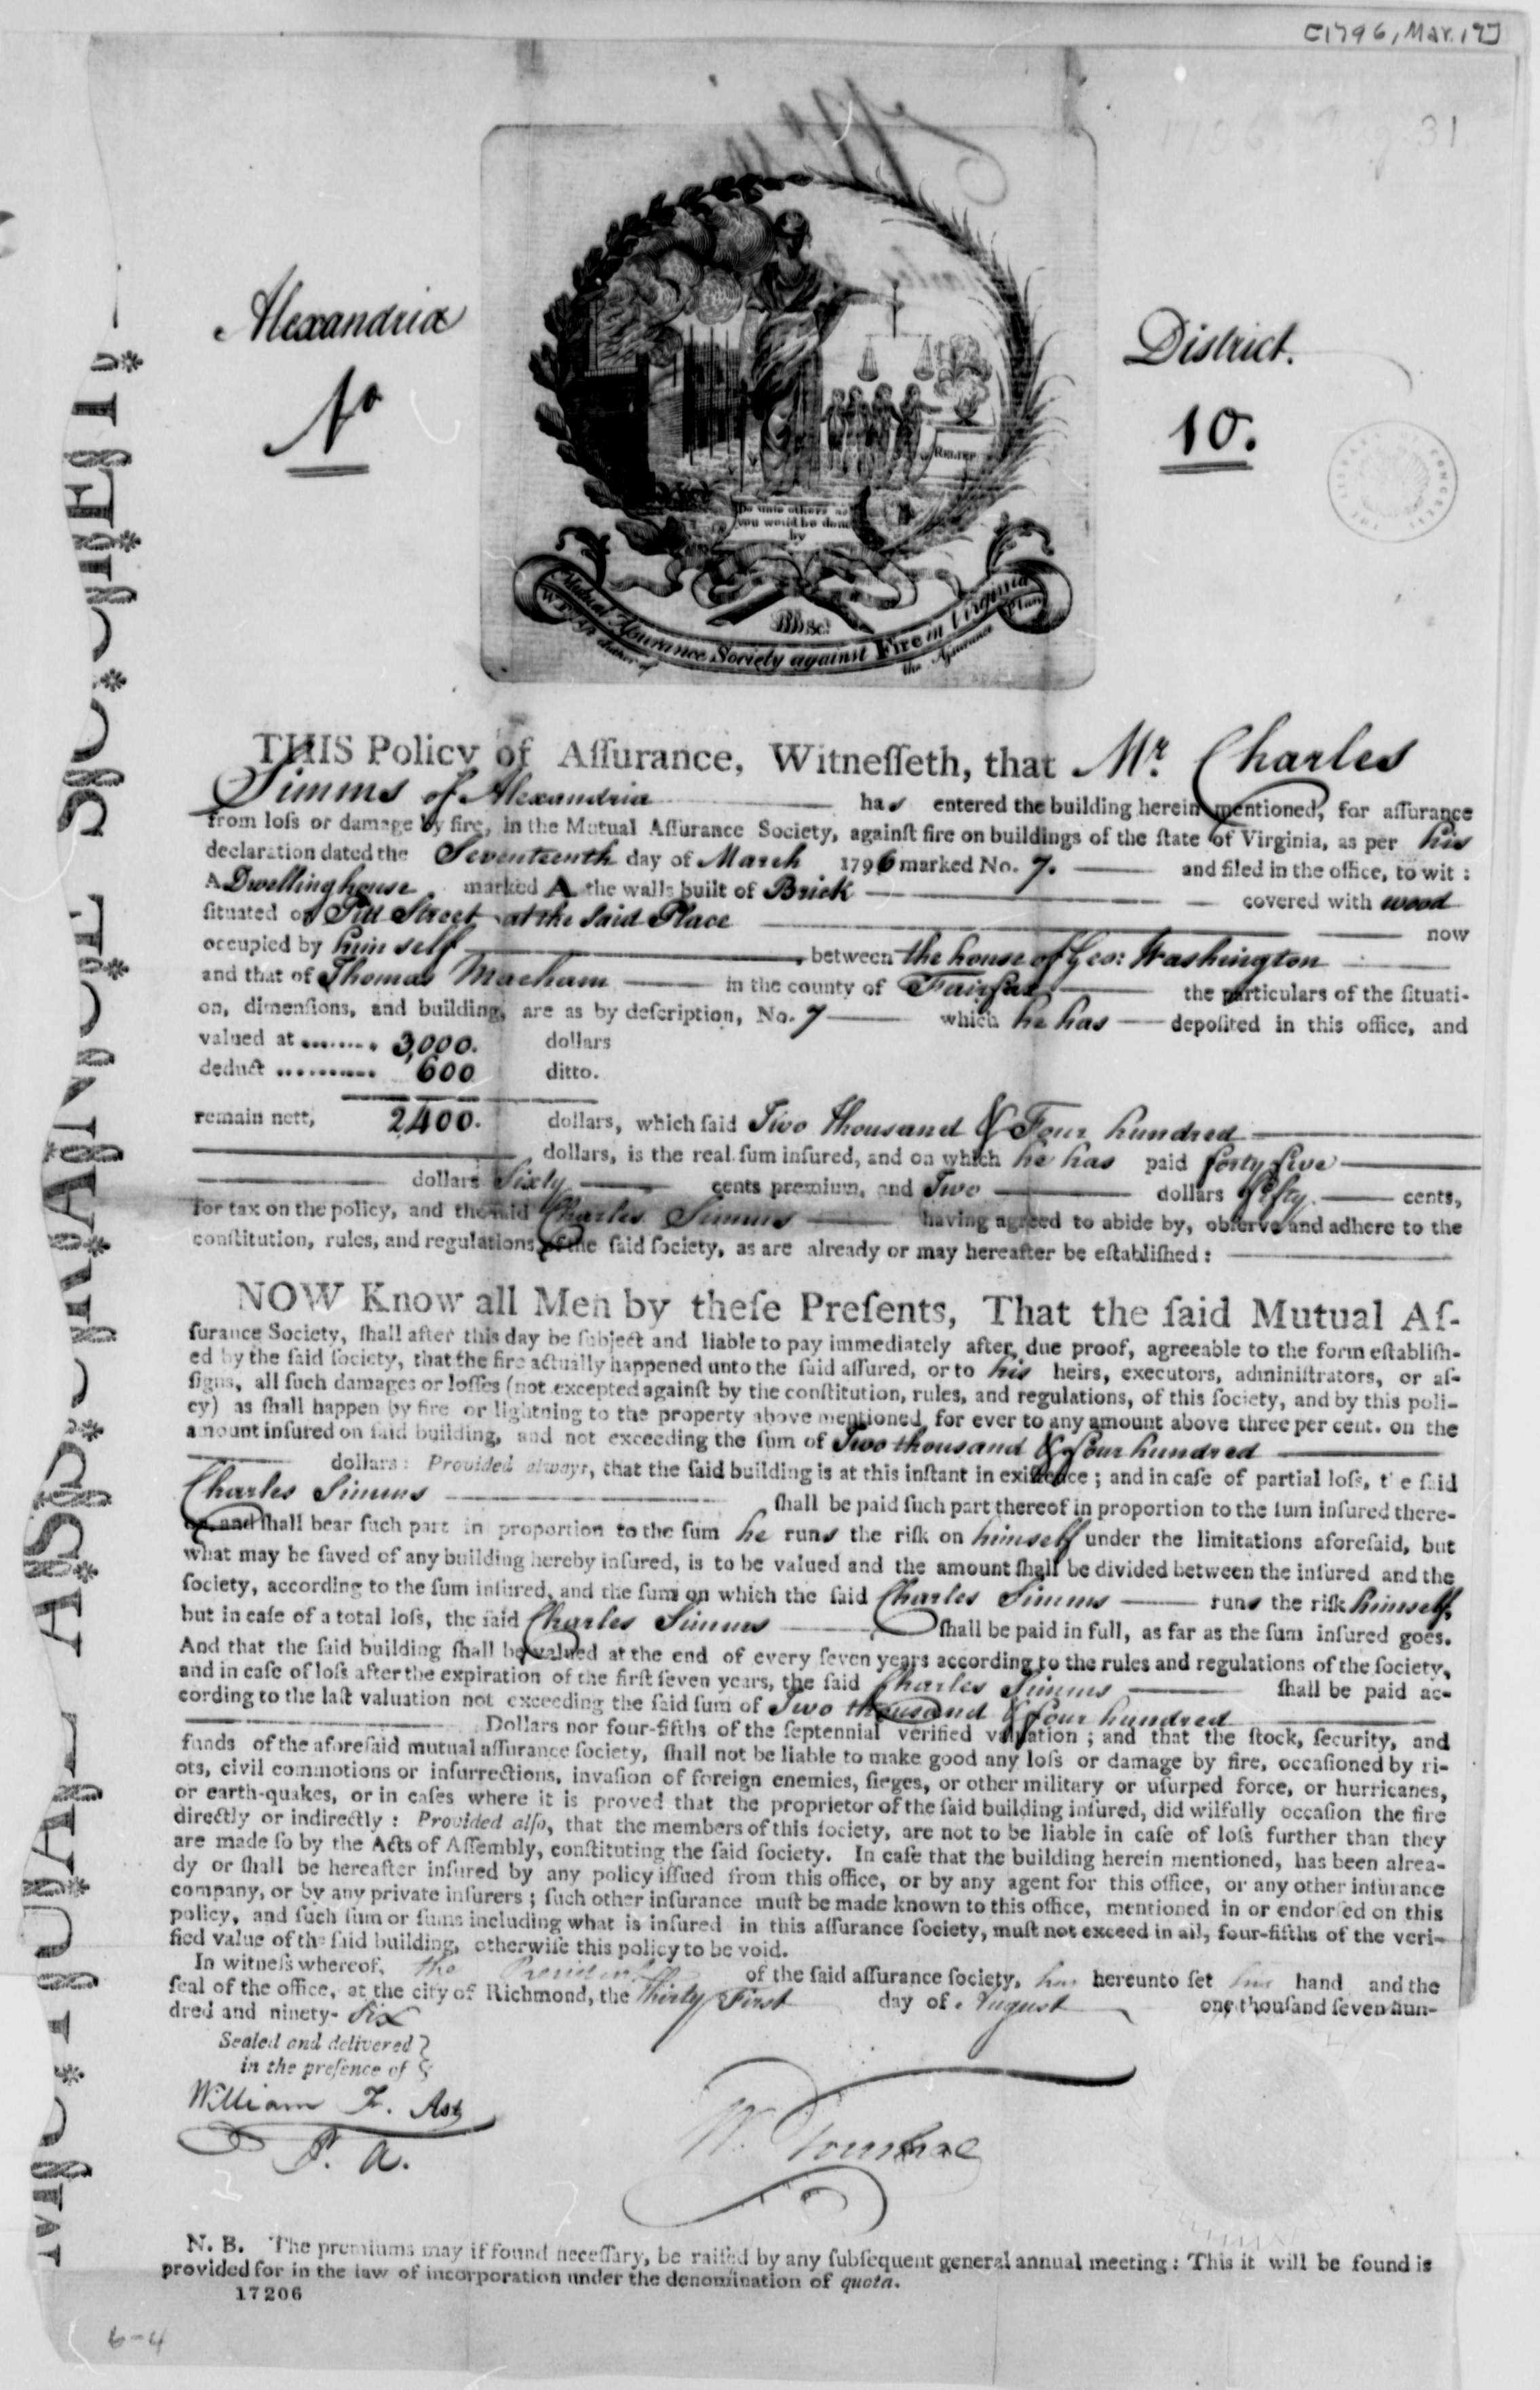 [1796, Mar. 17]
31
Alexandria
District.
No
10.
RELIEF
Do unto others as
you would be done
by
Mutual Aſsurance Society against Fire in Virginia
the Aſsurance Plan
THIS Policy of Aſſurance, Witneſſeth, that Mr. Charles
Simms of Alexandria has entered the building herein mentioned, for aſſurance
from loſs or damage by fire, in the Mutual Aſſurance Society, againſt fire on buildings of the ſtate of Virginia, as per his
declaration dated the Seventeenth day of March 1796 marked No. 7. and filed in the office, to wit:
A Dwelling house marked A the walls built of Brick covered with wood
situated on Pitt Street at the said Place now
occupied by him self between the house of Geo: Washington
and that of Thomas in the county of Fairfax the particulars of the ſituati-
on, dimenſions, and building, are as by deſcription, No. 7 which he has depoſited in this office, and
valued at ........ 3,000. dollars
deduct .......... 600 ditto.
remain nett, 2,400. dollars, which ſaid Two thousand & Four hundred
dollars, is the real ſum inſured, and on which he has paid forty five
dollars Sixty cents premium, and Two dollars fifty cents,
for tax on the policy, and the ſaid Charles Simms having agreed to abide by, obſerve and adhere to the
conſtitution, rules, and regulations of the ſaid ſociety, as are already or may hereafter be eſtabliſhed:
NOW Know all Men by theſe Preſents, That the ſaid Mutual Aſ-
ſurance Society, ſhall after this day be ſubject and liable to pay immediately after due proof, agreeable to the form eſtabliſh-
ed by the ſaid ſociety, that the fire actually happened unto the ſaid aſſured, or to his heirs, executors, adminiſtrators, or aſ-
ſigns, all ſuch damages or loſſes (not excepted againſt by the conſtitution, rules, and regulations, of this ſociety, and by this poli-
cy) as ſhall happen by fire or lightning to the property above mentioned for ever to any amount above three per cent. on the
amount inſured on ſaid building, and not exceeding the ſum of Two thousand & four hundred
dollars: Provided always, that the ſaid building is at this inſtant in exiſtence; and in caſe of partial loſs, the ſaid
Charles Simms ſhall be paid ſuch part thereof in proportion to the ſum inſured there-
on, and ſhall bear ſuch part in proportion to the ſum he runs the riſk on himself under the limitations aforeſaid, but
what may be ſaved of any building hereby inſured, is to be valued and the amount ſhall be divided between the inſured and the
ſociety, according to the ſum inſured, and the ſum on which the ſaid Charles Simms runs the riſk himself,
but in caſe of a total loſs, the ſaid Charles Simms ſhall be paid in full, as far as the ſum inſured goes.
And that the ſaid building ſhall be valued at the end of every ſeven years according to the rules and regulations of the ſociety,
and in caſe of loſs after the expiration of the firſt ſeven years, the ſaid Charles Simms ſhall be paid ac-
cording to the laſt valuation not exceeding the ſaid ſum of Two thousand & four hundred
Dollars nor four-fifths of the ſeptennial verified valuation; and that the ſtock, ſecurity, and
funds of the aforeſaid mutual aſſurance ſociety, ſhall not be liable to make good any loſs or damage by fire, occaſioned by ri-
ots, civil commotions or inſurrections, invaſion of foreign enemies, ſieges, or other military or uſurped force, or hurricanes,
or earth-quakes, or in caſes where it is proved that the proprietor of the ſaid building inſured, did wilfully occaſion the fire
directly or indirectly: Provided alſo, that the members of this ſociety, are not to be liable in caſe of loſs further than they
are made ſo by the Acts of Aſſembly, conſtituting the ſaid ſociety. In caſe that the building herein mentioned, has been alrea-
dy or ſhall be hereafter inſured by any policy iſſued from this office, or by any agent for this office, or any other inſurance
company, or by any private inſurers; ſuch other inſurance muſt be made known to this office, mentioned in or endorſed on this
policy, and ſuch ſum or ſums including what is inſured in this aſſurance ſociety, muſt not exceed in all, four-fifths of the veri-
fied value of the ſaid building, otherwiſe this policy to be void.
In witneſs whereof, the President of the ſaid aſſurance ſociety, has hereunto ſet his hand and the
ſeal of the office, at the city of Richmond, the Thirty First day of August one thouſand ſeven hun-
dred and ninety-Six
Sealed and delivered
in the preſence of
William F. Ast
P. A.
W.
N. B. The premiums may if found neceſſary, be raiſed by any ſubſequent general annual meeting: This it will be found is
provided for in the law of incorporation under the denomination of quota.
17206
6-4